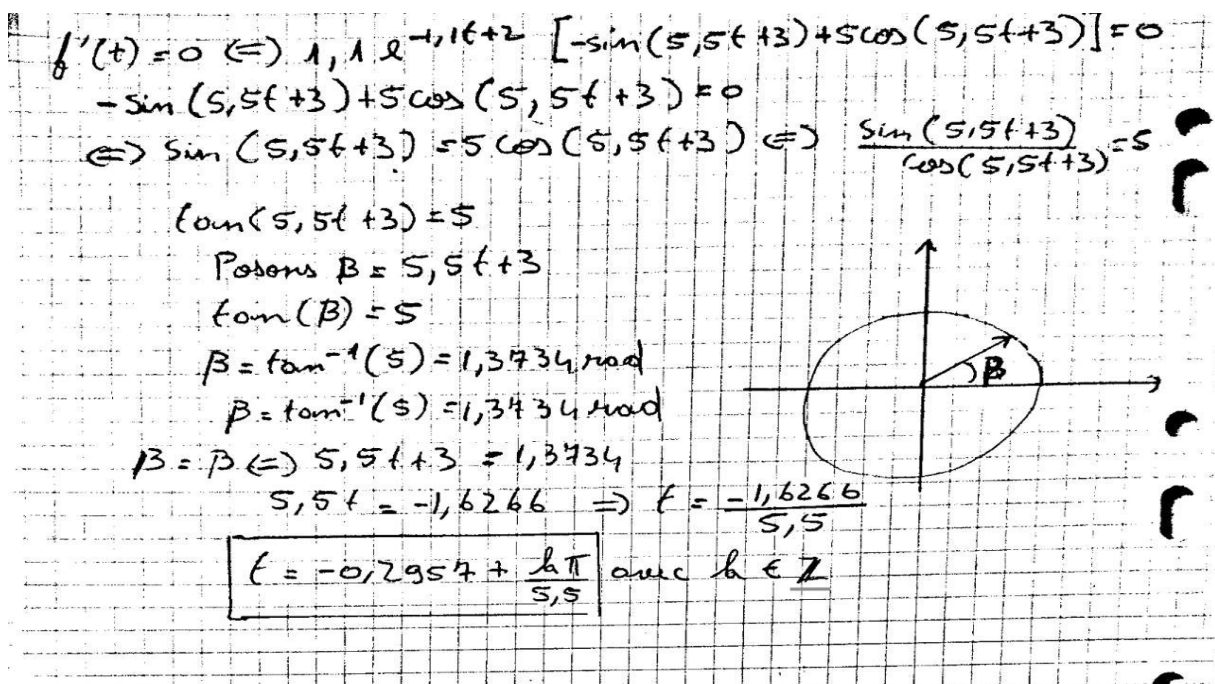 f'(t) = 0 <=> 1,1 e^-1,1t+2 [-sin(5,5t+3)+5cos(5,5t+3)] = 0
-sin(5,5t+3)+5cos(5,5t+3) = 0
<=> sin(5,5t+3) = 5cos(5,5t+3) <=> sin(5,5t+3)/cos(5,5t+3) = 5
tan(5,5t+3) = 5
Posons β = 5,5t+3
tan(β) = 5
β = tan^-1(5) = 1,3734 rad
β
β = tan^-1(5) = 1,3734 rad
β = β <=> 5,5t+3 = 1,3734
5,5t = -1,6266 => t = -1,6266/5,5
t = -0,2957 + kπ/5,5 avec k ∈ ℤ